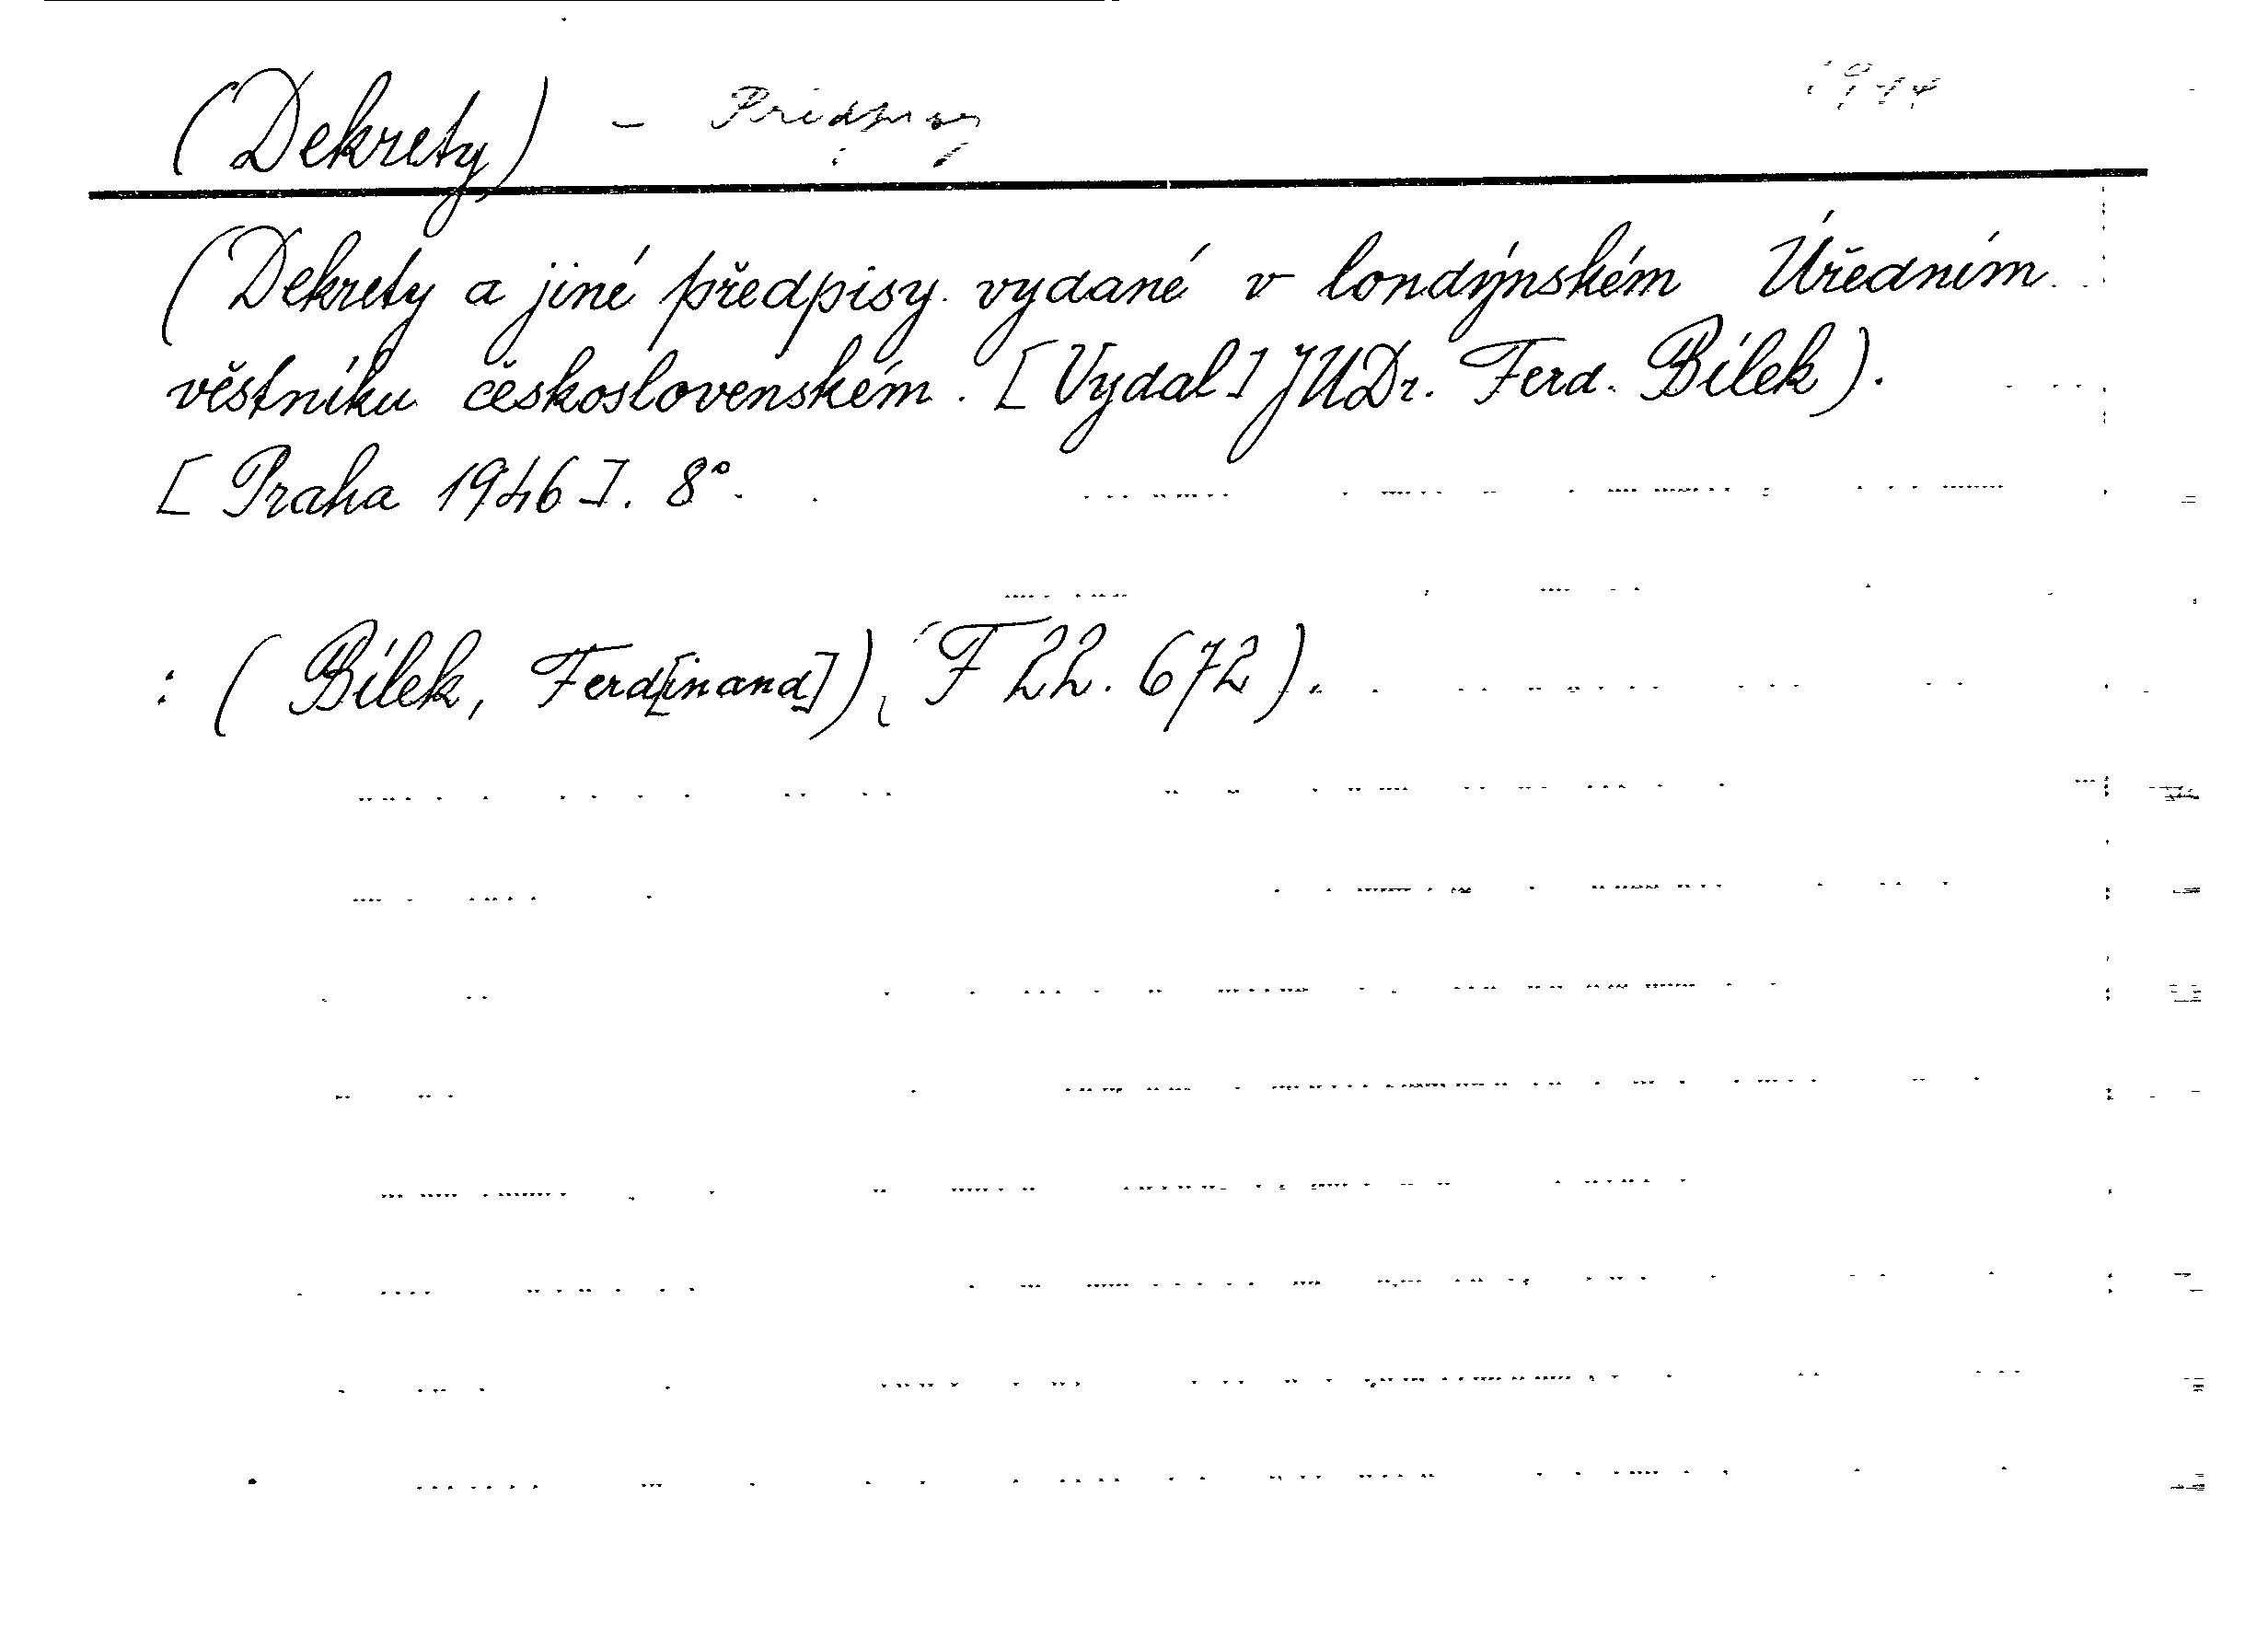 (Dekrety) –
(Dekrety a jiné předpisy vydané v londýnském Úředním
věstníku československém. [Vydal] JUDr. Ferd. Bílek).
[Praha 1946]. 8°.
: (Bílek, Ferd[inand]) (F 22.672).